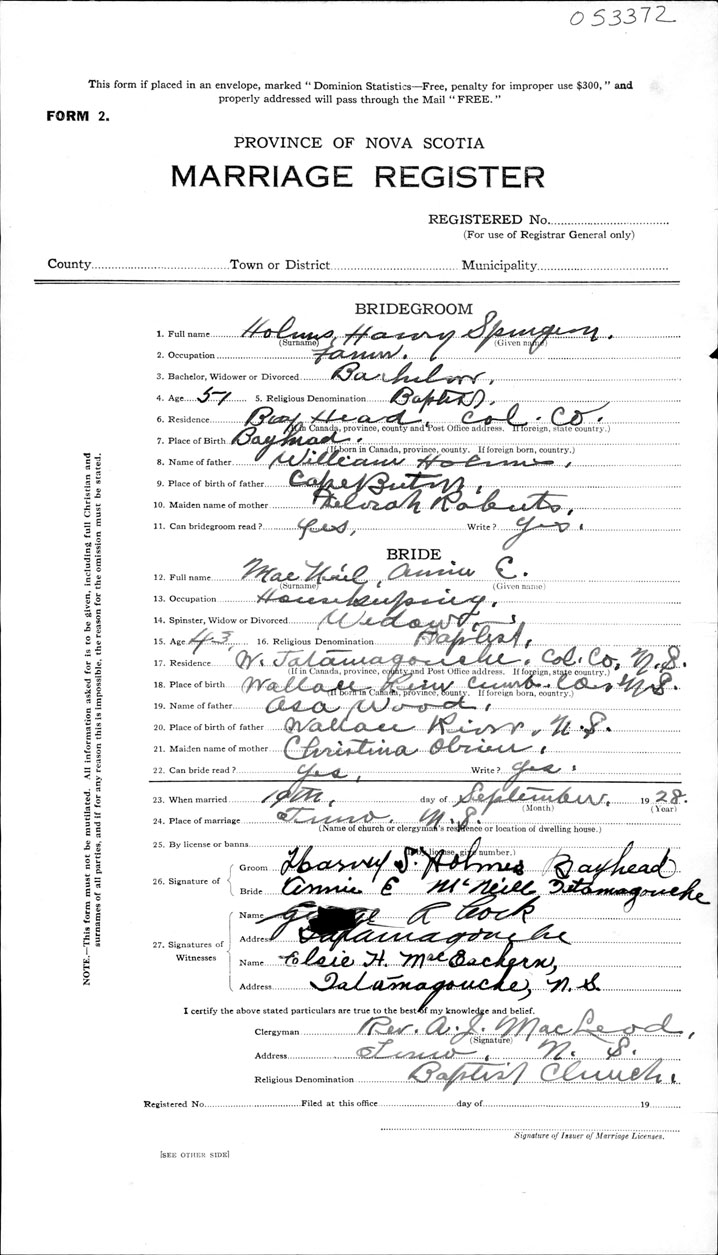 053372
This form if placed in an envelope, marked "Dominion Statistics—Free, penalty for improper use $300," and
properly addressed will pass through the Mail "FREE."
FORM 2.
PROVINCE OF NOVA SCOTIA
MARRIAGE REGISTER
REGISTERED No.
(For use of Registrar General only)
County Town or District Municipality
BRIDEGROOM
1. Full name Holms, Harvy Spurgeon.
(Surname) (Given name)
2. Occupation Farmer.
3. Bachelor, Widower or Divorced Bachelor.
4. Age 57 5. Religious Denomination Baptist.
6. Residence Bay Head. Col. Co.
(If in Canada, province, county and Post Office address. If foreign, state country.)
7. Place of Birth Bayhead.
(If born in Canada, province, county. If foreign born, country.)
8. Name of father William Holms,
9. Place of birth of father Cape Breton,
10. Maiden name of mother Deborah Roberts,
11. Can bridegroom read? Yes, Write? Yes.
BRIDE
12. Full name MacNeil, Annie E.
(Surname) (Given name)
13. Occupation Housekeeping,
14. Spinster, Widow or Divorced Widow,
15. Age 43, 16. Religious Denomination Baptist,
17. Residence W. Tatamagouche. Col. Co, N.S.
(If in Canada, province, county and Post Office address. If foreign, state country.)
18. Place of birth Wallace River Cumb. Co. N.S.
(If born in Canada, province, county. If foreign born, country.)
19. Name of father Asa Wood,
20. Place of birth of father Wallace River, N.S.
21. Maiden name of mother Christina Obrien,
22. Can bride read? Yes, Write? Yes.
23. When married 19th, day of September, 1928.
(Month) (Year)
24. Place of marriage Truro, N.S.
(Name of church or clergyman's residence or location of dwelling house.)
25. By license or banns
(If by license, give number.)
26. Signature of
Groom Harvey S. Holmes Bayhead
Bride Annie E McNeill Tatamagouche
27. Signatures of Witnesses
Name George R Cock
Address Tatamagouche
Name Elsie H. MacEachern,
Address Tatamagouche, N.S
I certify the above stated particulars are true to the best of my knowledge and belief.
Clergyman Rev. A. J. MacLeod,
(Signature)
Address Truro, N. S.
Religious Denomination Baptist Church.
Registered No. Filed at this office day of 19
Signature of Issuer of Marriage Licenses.
[SEE OTHER SIDE]
NOTE.—This form must not be mutilated. All information asked for is to be given, including full Christian and
surnames of all parties, and if for any reason this is impossible, the reason for the omission must be stated.